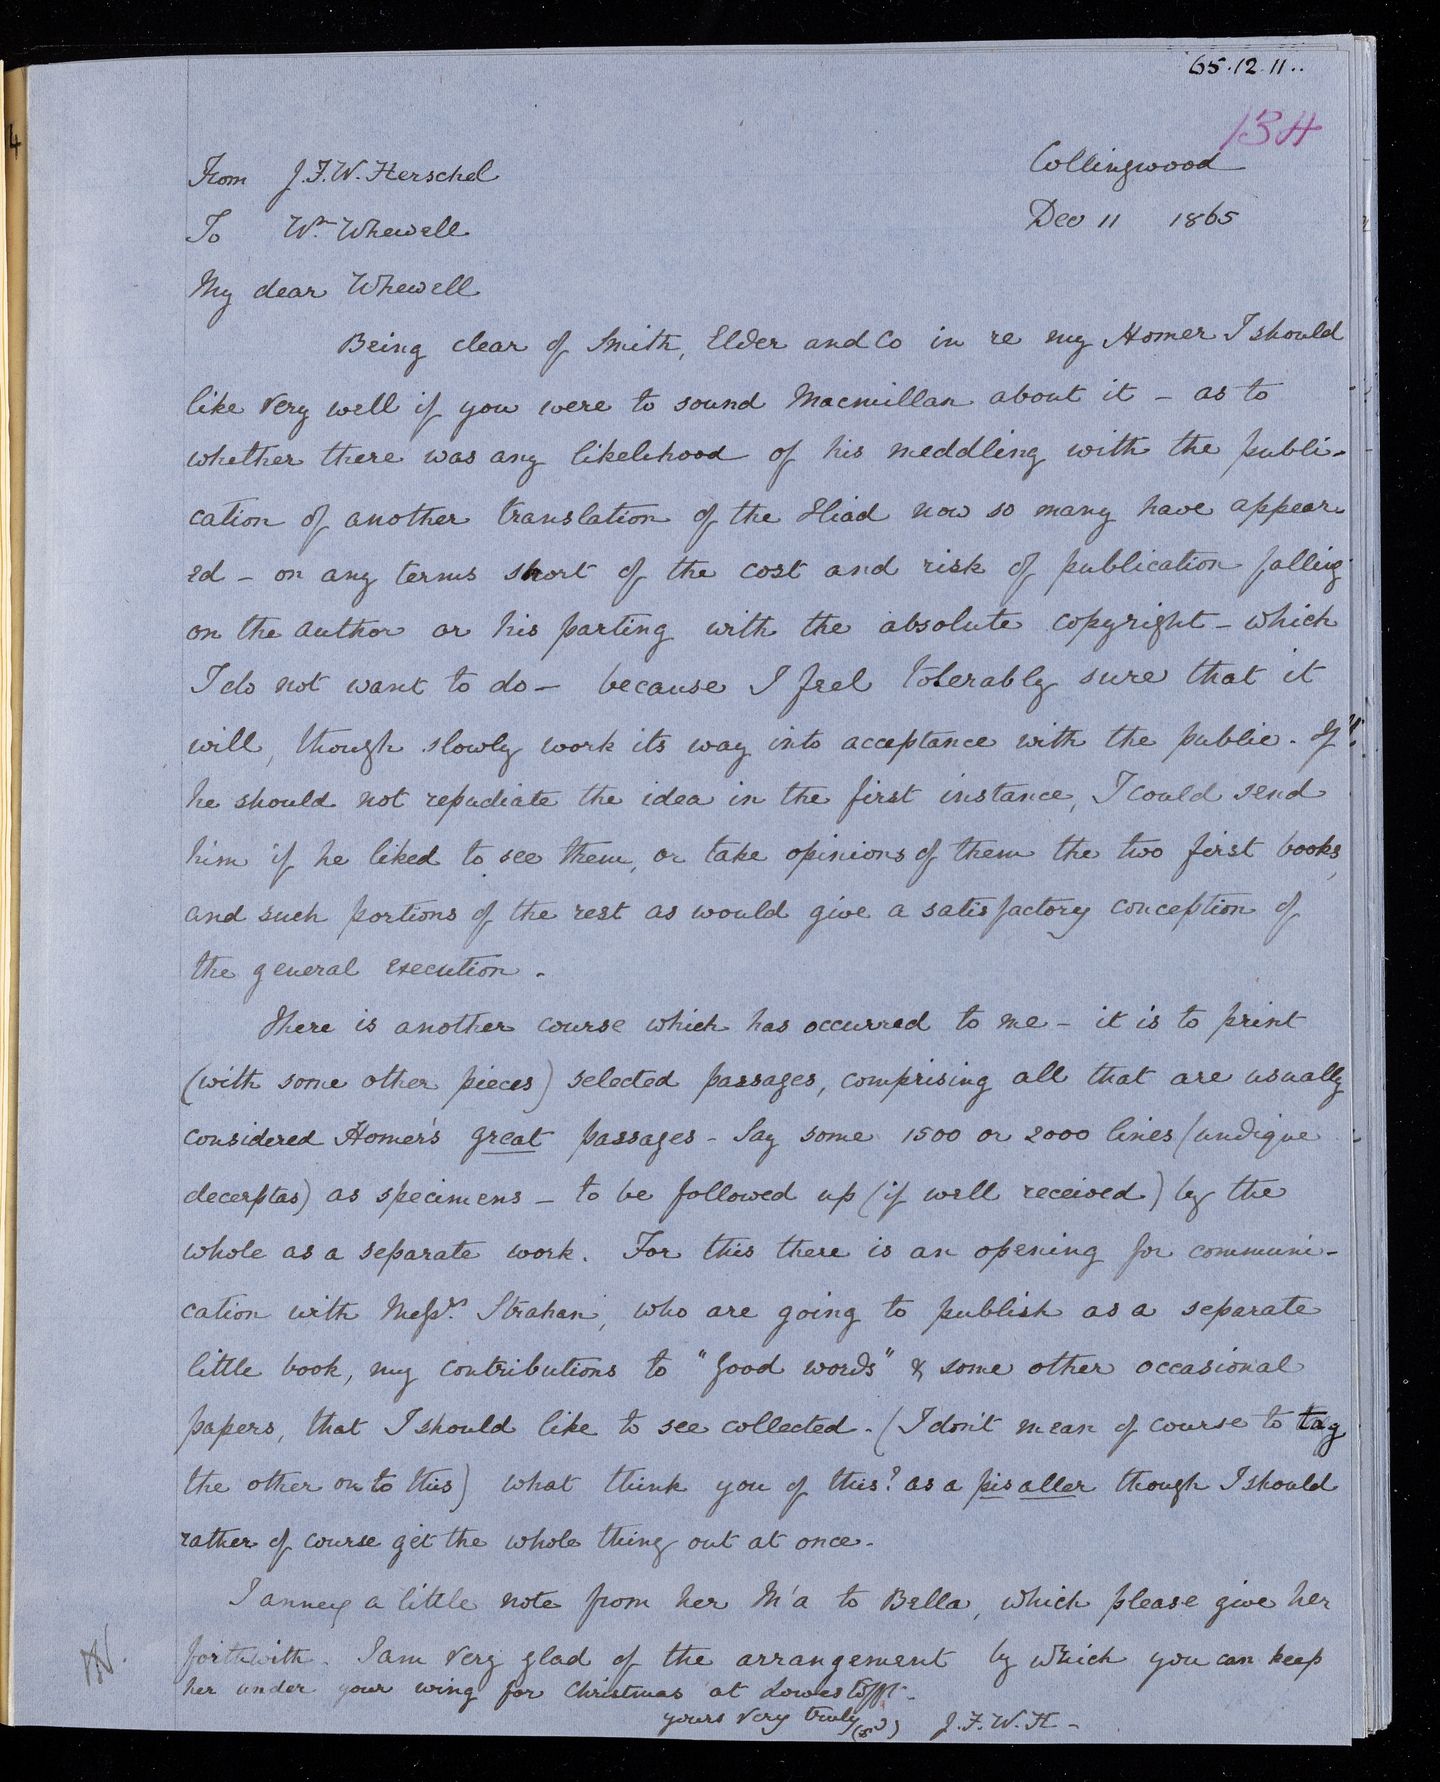 65.12.11..
134
4
From J.F.W. Herschel
Collingwood
To Wm. Whewell
Dec 11 1865
My dear Whewell
Being clear of Smith, Elder and Co in re my Homer I should
like very well if you were to sound Macmillan about it – as to
whether there was any likelihood of his meddling with the publi-
cation of another translation of the Iliad now so many have appear
ed – on any terms short of the cost and risk of publication falling
on the author or his parting with the absolute copyright – which
I do not want to do – because I feel tolerably sure that it
will, though slowly work its way into acceptance with the public. If
he should not repudiate the idea in the first instance, I could send
him if he liked to see them, or take opinions of them the two first books,
and such portions of the rest as would give a satisfactory conception of
the general execution.
There is another course which has occurred to me – it is to print
(with some other pieces) selected passages, comprising all that are usually
considered Homer's great passages – Say some 1500 or 2000 lines (undique
decerptas) as specimens – to be followed up (if well received) by the
whole as a separate work. For this there is an opening for communi-
cation with Messrs. Strahan, who are going to publish as a separate
little book, my contributions to "Good words" & some other occasional
papers, that I should like to see collected. (I don't mean of course to tag
the other on to this) what think you of this? as a pis aller though I should
rather of course get the whole thing out at once.
I annex a little note from her M'a to Bella, which please give her
forthwith. I am very glad of the arrangement by which you can keep
her under your wing for Christmas at Lowestofft.
yours very truly (sd) J.F.W.H –